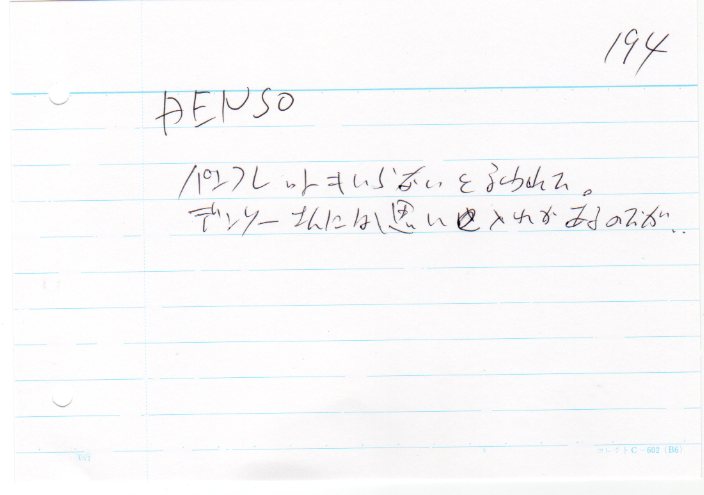 194
DENSO
パンフレットもいらないと言われた。
デンソーさんには思い入れがあるのだが..
コレクト C-602 (B6)